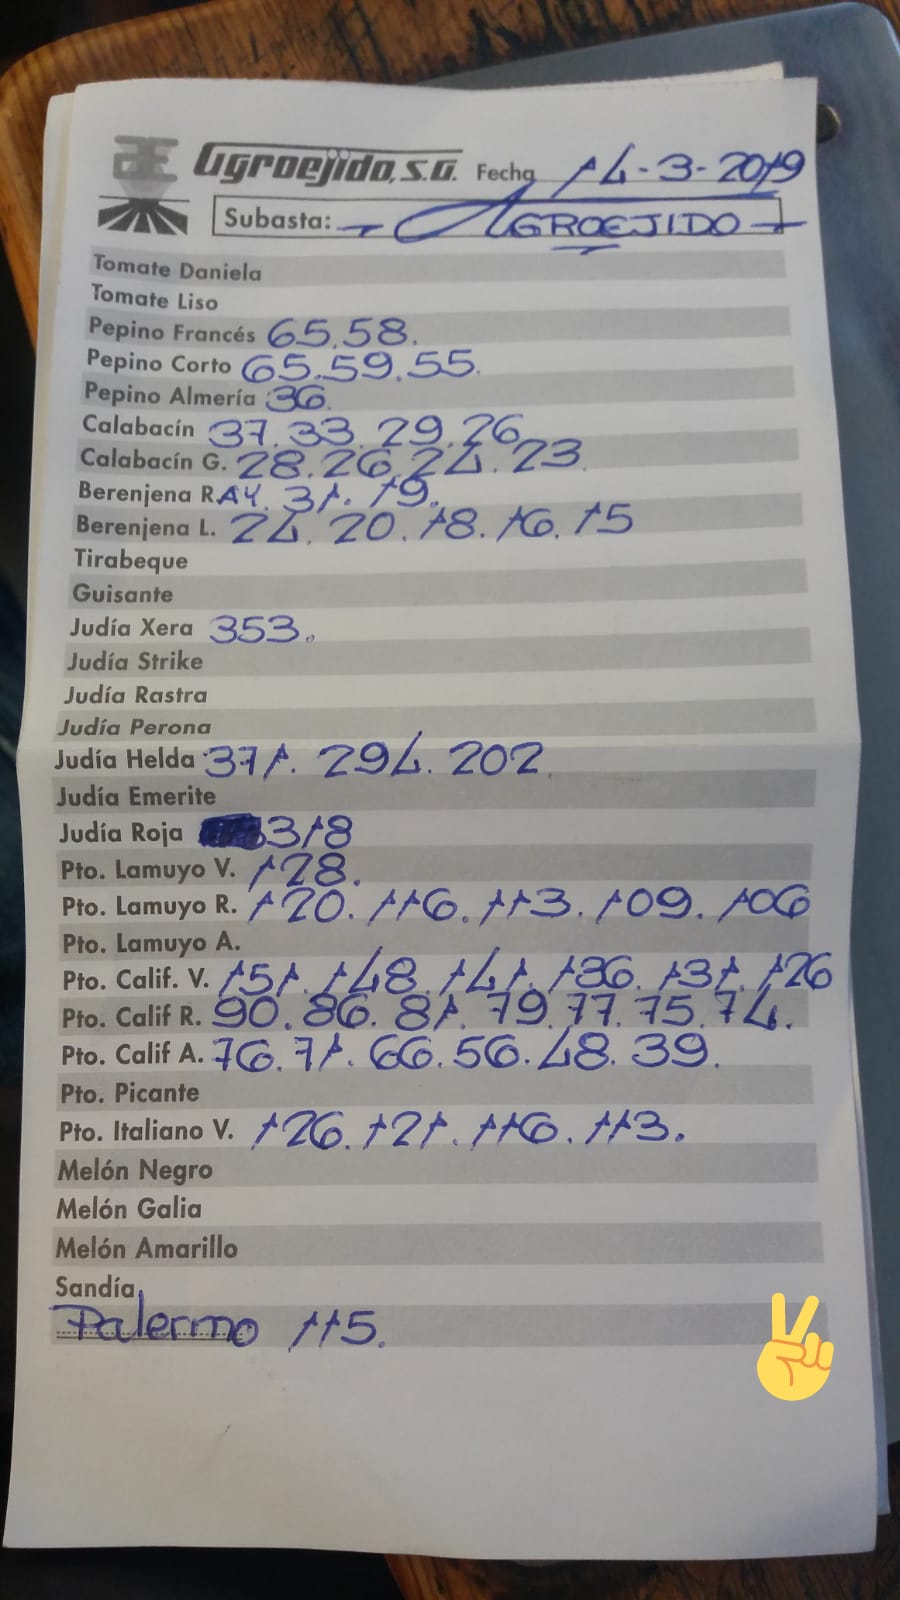 Agroejido, S.A. Fecha 14-3-2019
Subasta: - AGROEJIDO -
Tomate Daniela
Tomate Liso
Pepino Francés 65.58.
Pepino Corto 65.59.55.
Pepino Almería 36.
Calabacín 37.33.29.26
Calabacín G. 28.26.24.23
Berenjena R.AY. 31. 19.
Berenjena L. 24. 20. 18. 16. 15
Tirabeque
Guisante
Judía Xera 353.
Judía Strike
Judía Rastra
Judía Perona
Judía Helda 371. 294. 202
Judía Emerite
Judía Roja 318
Pto. Lamuyo V. 128.
Pto. Lamuyo R. 120. 116. 113. 109. 106
Pto. Lamuyo A.
Pto. Calif. V. 151. 148. 141. 136. 131. 126
Pto. Calif R. 90. 86. 81. 79. 77. 75. 74.
Pto. Calif A. 76. 71. 66. 56. 48. 39.
Pto. Picante
Pto. Italiano V. 126. 121. 116. 113.
Melón Negro
Melón Galia
Melón Amarillo
Sandía
Palermo 115.